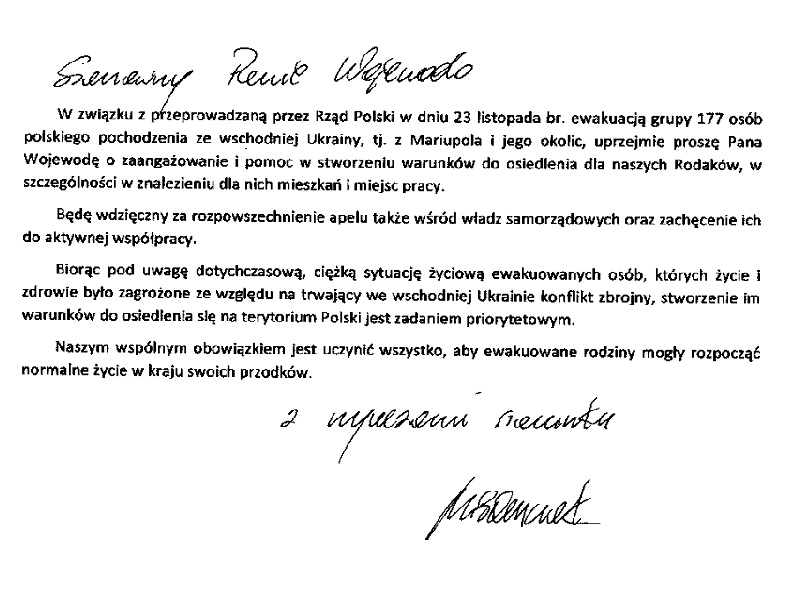 Szanowny Panie Wojewodo
W związku z przeprowadzaną przez Rząd Polski w dniu 23 listopada br. ewakuacją grupy 177 osób
polskiego pochodzenia ze wschodniej Ukrainy, tj. z Mariupola i jego okolic, uprzejmie proszę Pana
Wojewodę o zaangażowanie i pomoc w stworzeniu warunków do osiedlenia dla naszych Rodaków, w
szczególności w znalezieniu dla nich mieszkań i miejsc pracy.
Będę wdzięczny za rozpowszechnienie apelu także wśród władz samorządowych oraz zachęcenie ich
do aktywnej współpracy.
Biorąc pod uwagę dotychczasową, ciężką sytuację życiową ewakuowanych osób, których życie i
zdrowie było zagrożone ze względu na trwający we wschodniej Ukrainie konflikt zbrojny, stworzenie im
warunków do osiedlenia się na terytorium Polski jest zadaniem priorytetowym.
Naszym wspólnym obowiązkiem jest uczynić wszystko, aby ewakuowane rodziny mogły rozpocząć
normalne życie w kraju swoich przodków.
z wyrazami szacunku